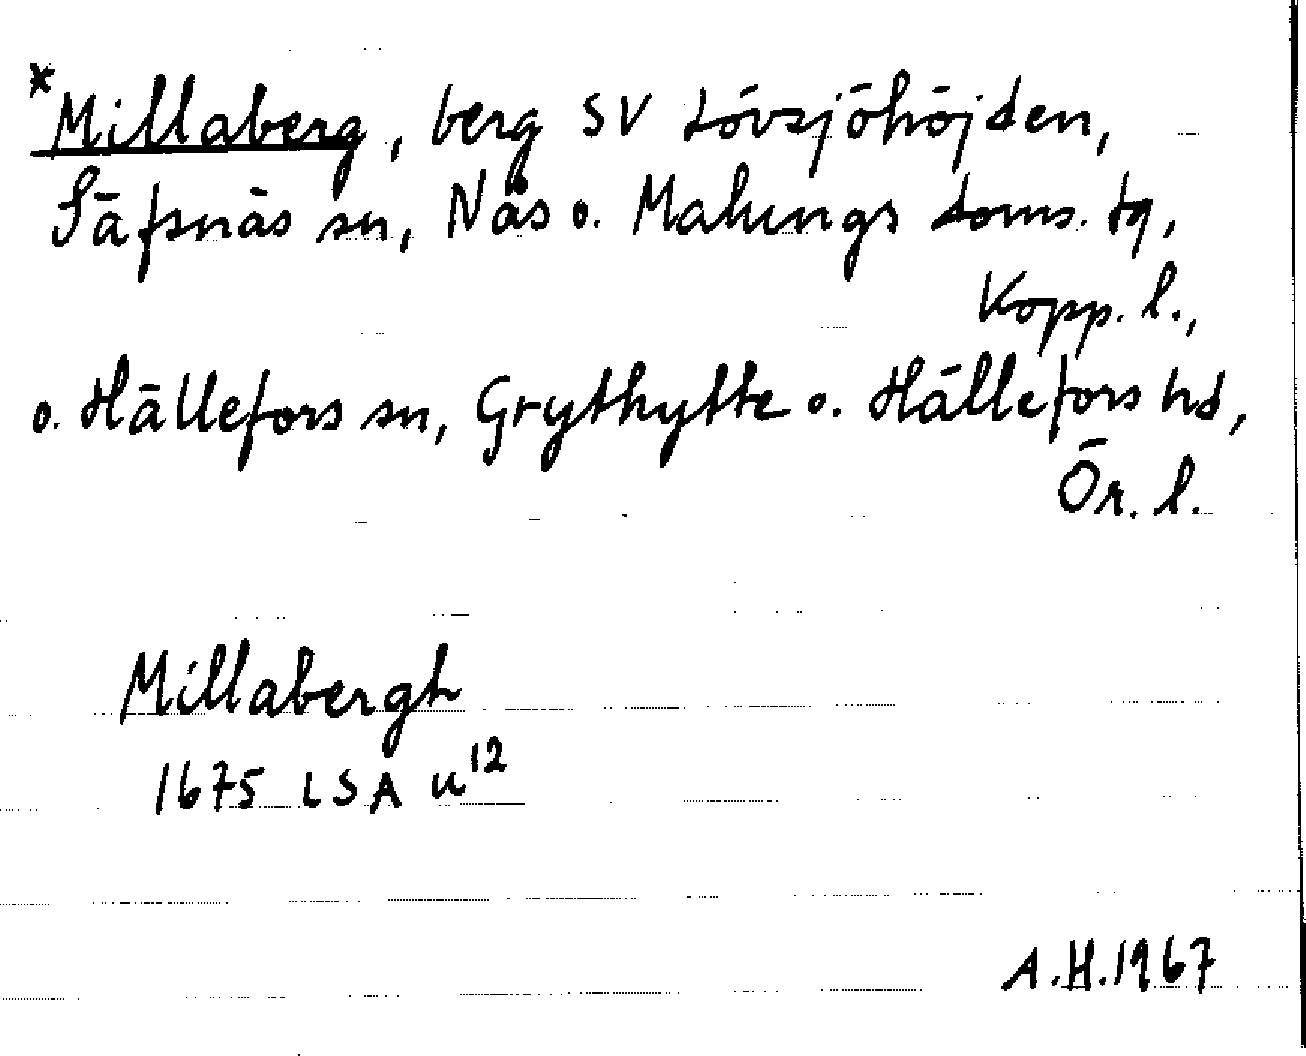 *Millaberg, berg SV Lövsjöhöjden,
Säfsnäs sn, Nås o. Malungs doms. tg,
Kopp. l.,
o. Hällefors sn, Grythytte o. Hällefors hd,
Ör. l.
Millabergh
1675 LSA u12
A.H.1967